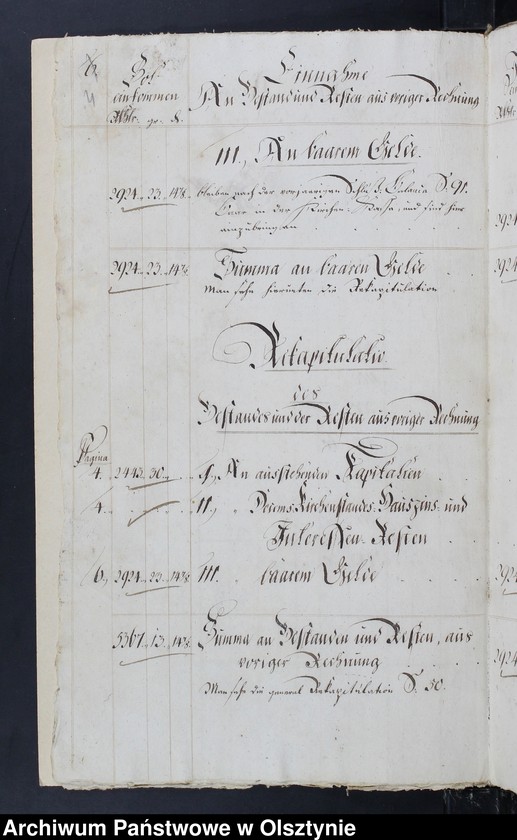 6.
Soll
einkommen
Rthlr. gr. d.
Einnahme
An Bestand und Resten aus voriger Rechnung
III., An baarem Gelde.
2924. 23. 14 3/8. bleiben nach der vorjaerigen Schluß Bilance S. 91.
Baar in der Kirchen Kasse, und sind hier
anzubringen
2924. 23. 14 3/8. Summa an baaren Gelde
Man sehe hierunten die Rekapitulation
Rekapitulatio
des
Bestandes und der Resten aus voriger Rechnung
Pagina
4. 2443. 30. I., An ausstehenden Kapitalien
4. II., Decems Kirchenstandes Hauszins und
Interessen Resten
6., 2924. 23. 14 3/8 III. baarem Gelde
5367. 13. 14 3/8. Summa an Bestanden und Resten, aus
voriger Rechnung
Man sehe die general Rekapitulation S. 50.
Archiwum Państwowe w Olsztynie